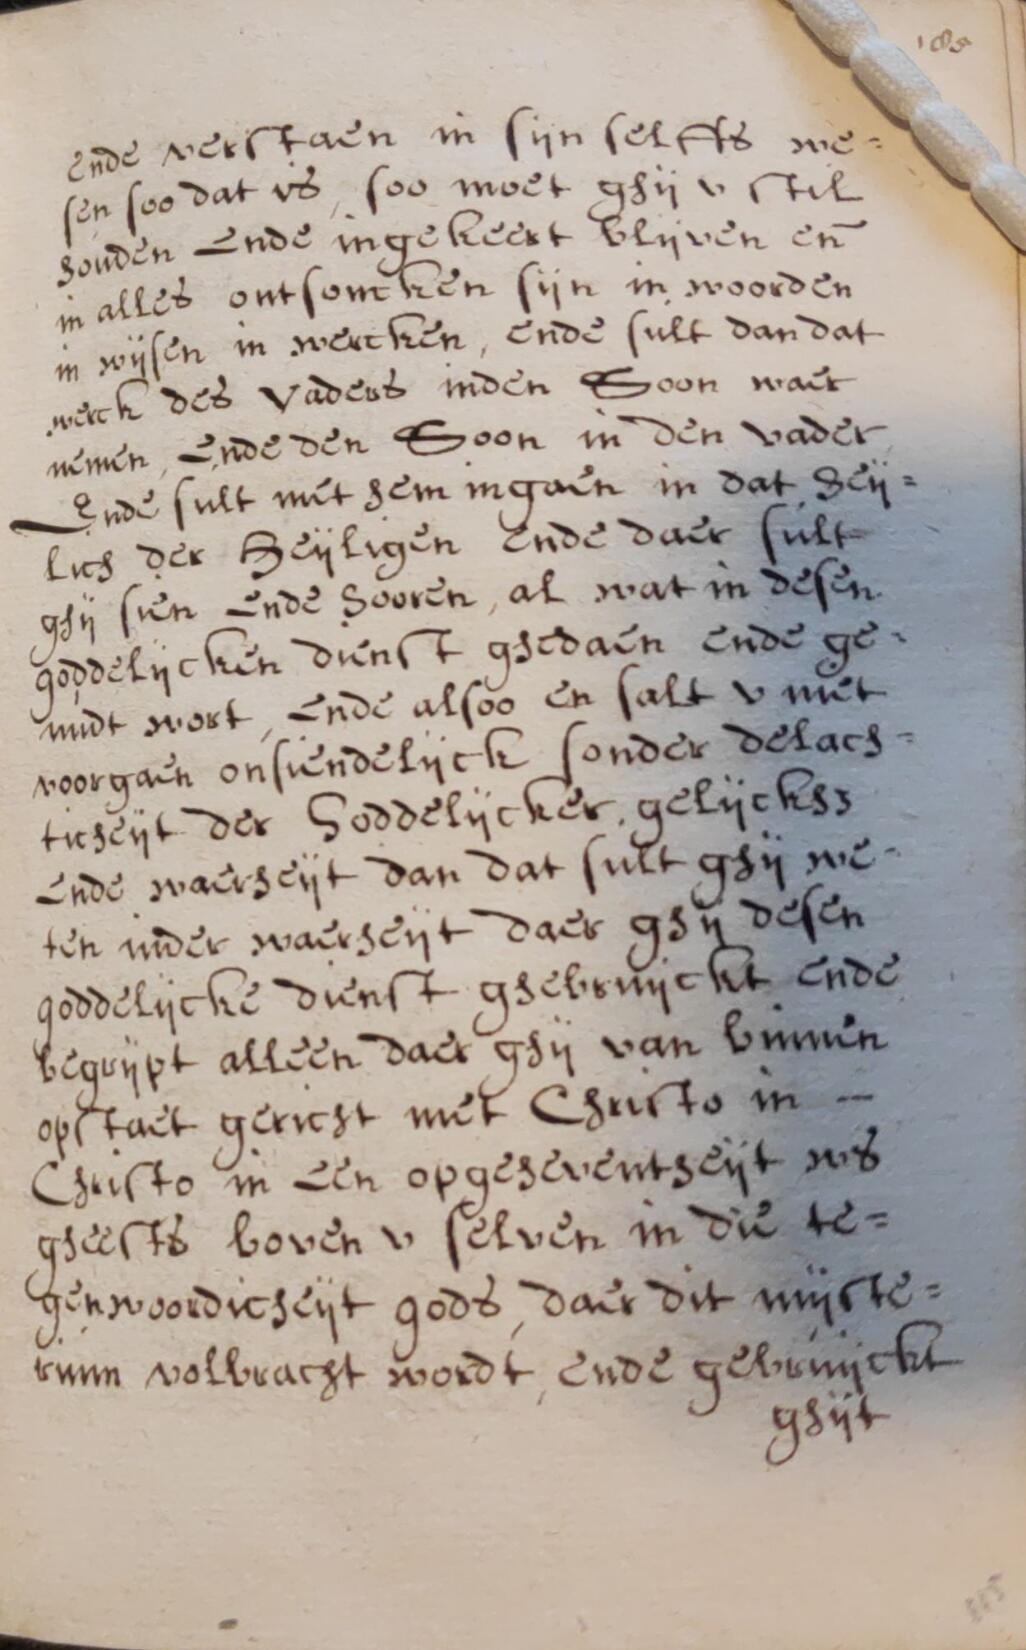 185
ende verstaen in sijn selffs we=
sen soo dat is, soo moet ghij v stil
houden Ende ingekeert blijven en̄
in alles ontsoncken sijn in woorden
in wijsen in wercken, ende sult dan dat
werck des Vaders inden Soon waer
nemen, Ende den Soon in den vader
Ende sult met hem ingaen in dat Heij=
lich der Heijligen Ende daer sult
ghij sien Ende hooren, al wat in desen
goddelijcken dienst ghedaen ende ge=
nudt wort, Ende alsoo en salt v niet
voorgaen onsiendelijck sonder delach=
ticheijt der Goddelijcker gelijckh:
Ende waerheijt dan dat sult ghij we=
ten inder waerheijt daer ghij desen
goddelijcke dienst ghebruijckt ende
begrijpt alleen daer ghij van binnen
opstaet gericht met Christo in —
Christo in Een opgeheventheijt ws
gheests boven v selven in die te=
genwoordicheijt gods, daer dit mijste=
rium volbracht wordt, ende gebruijckt
ghijt